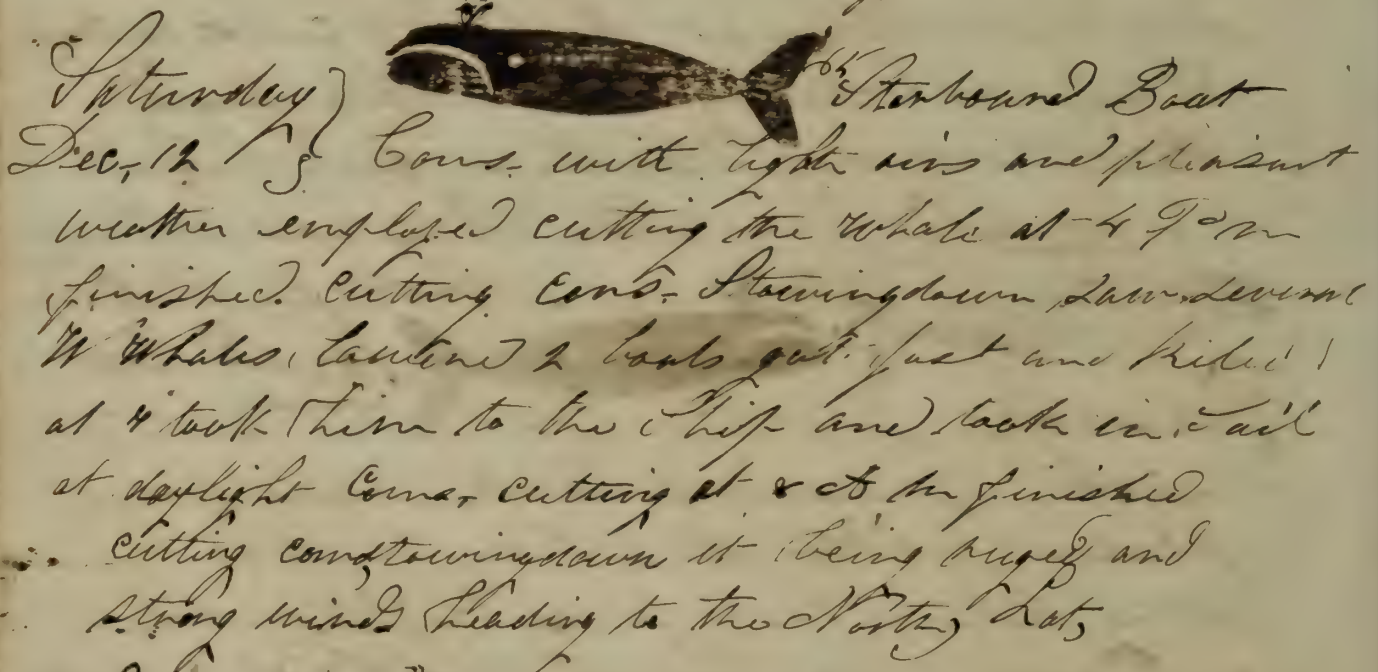 Saturday } 65 Starbound Boat
Dec, 12 } Coms. with light airs and pleasant
weather employed cutting the whale at 4 P m
finished. Cutting Coms. Stowingdown saw several
W Whales, lowered 2 boats got fast and Killed 1
at 4 took him to the Ship and took in Sail
at daylight Coms, cutting at 8 A m finished
cutting comdstowingdown it being ruged and
strong winds heading to the North, Lat,